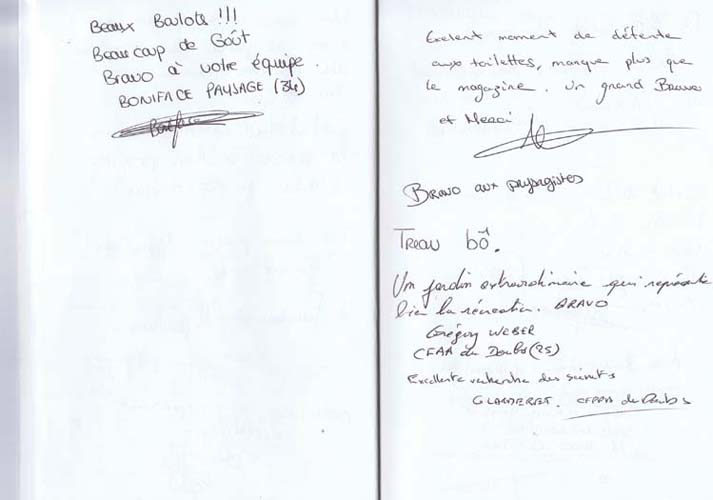 Beaux Boulots !!!
Beaucoup de Goût
Bravo à votre équipe.
BONIFACE PAYSAGE (34)
Boniface
Exelent moment de détente
aux toilettes, manque plus que
le magazine. Un grand Bravo
et Merci
BRAVO aux paysagistes
TREAU bô.
Un jardin extraordinaire qui représente
bien la récréation. BRAVO
Grégory WEBER
CFAA du Doubs (25)
Excellente recherche des
CFPPA du Doubs